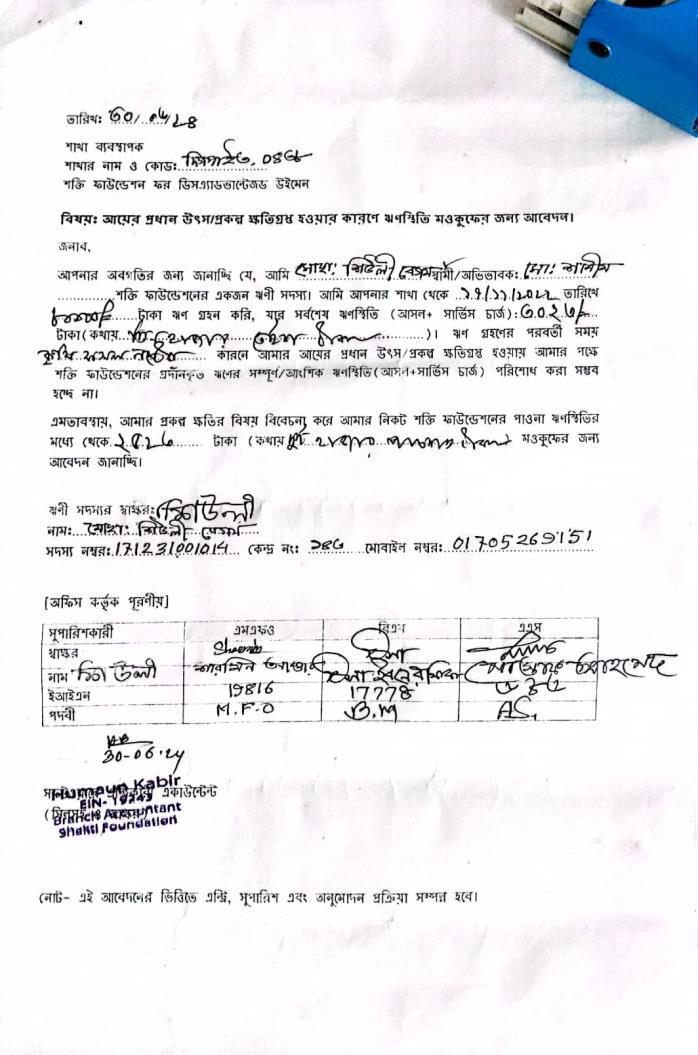 তারিখ: ৩০/০৬/২৪
শাখা ব্যবস্থাপক
শাখার নাম ও কোড: ০৪৬
শক্তি ফাউন্ডেশন ফর ডিসএ্যাডভান্টেজড উইমেন
বিষয়: আয়ের প্রধান উৎস/প্রকল্প ক্ষতিগ্রস্ত হওয়ার কারণে ঋণস্থিতি মওকুফের জন্য আবেদন।
জনাব,
আপনার অবগতির জন্য জানাচ্ছি যে, আমি মোছা: শিউলী বেগম স্বামী/অভিভাবক: মো: শামীম
শক্তি ফাউন্ডেশনের একজন ঋণী সদস্য। আমি আপনার শাখা থেকে ২২ তারিখে
টাকা ঋণ গ্রহন করি, যার সর্বশেষ ঋণস্থিতি (আসল+ সার্ভিস চার্জ): ৩০২৬/-
টাকা (কথায় তিন হাজার টাকা)। ঋণ গ্রহণের পরবর্তী সময়
কৃষি ফসল নষ্টের কারনে আমার আয়ের প্রধান উৎস/প্রকল্প ক্ষতিগ্রস্ত হওয়ায় আমার পক্ষে
শক্তি ফাউন্ডেশনের প্রদানকৃত ঋণের সম্পূর্ণ/আংশিক ঋণস্থিতি(আসল+সার্ভিস চার্জ) পরিশোধ করা সম্ভব
হচ্ছে না।
এমতাবস্থায়, আমার প্রকল্প ক্ষতির বিষয় বিবেচনা করে আমার নিকট শক্তি ফাউন্ডেশনের পাওনা ঋণস্থিতির
মধ্যে থেকে টাকা (কথায় দুই হাজার টাকা) মওকুফের জন্য
আবেদন জানাচ্ছি।
ঋণী সদস্যর স্বাক্ষর: শিউলী
নাম: মোছা: শিউলী বেগম
সদস্য নম্বর: 171231001014 কেন্দ্র নং: ১৪৬ মোবাইল নম্বর: 01705269151
[অফিস কর্তৃক পূরণীয়]
সুপারিশকারী এমএফও বিএম এএস
স্বাক্ষর
নাম শিউলী শারমিন আক্তার
ইআইএন 19816 17778
পদবী M.F.O B.M AS,
30-06-24
একাউন্টেন্ট
Humayun Kabir
EIN- 19243
Branch Accountant
Shakti Foundation
নোট- এই আবেদনের ভিত্তিতে এন্ট্রি, সুপারিশ এবং অনুমোদন প্রক্রিয়া সম্পন্ন হবে।